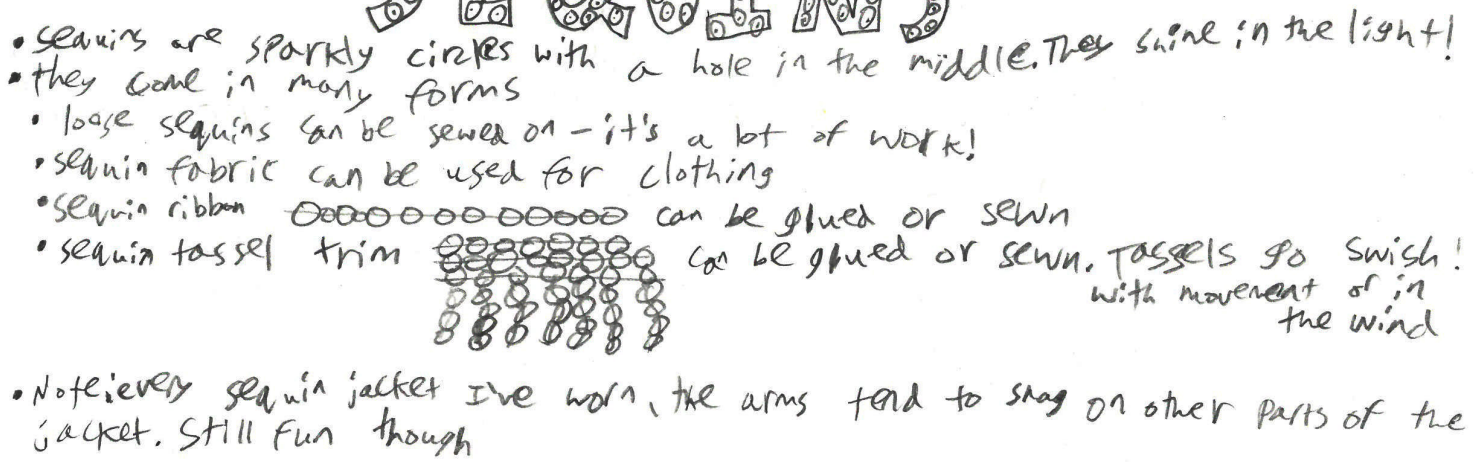 • sequins are sparkly circles with a hole in the middle. They shine in the light!
• they come in many forms
• loose sequins can be sewed on - it's a lot of work!
• sequin fabric can be used for clothing
• sequin ribbon can be glued or sewn
• sequin tassel trim can be glued or sewn. Tassels go swish!
with movement or in
the wind
• Note: every sequin jacket I've worn, the arms tend to snag on other parts of the
jacket. Still fun though